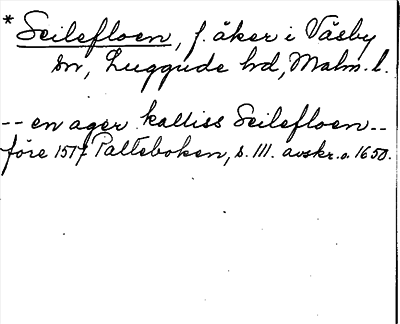 * Seilefloen, f. åker i Väsby
sn, Luggude hd, Malm. l.
-- en ager kalliss Seilefloen --
före 1517 Palteboken, s. 111. avskr. o. 1650.